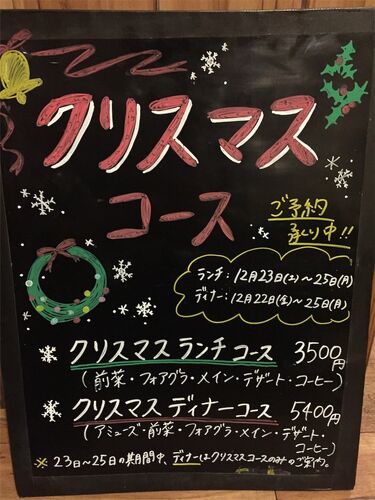 クリスマス
コース
ご予約
承り中!!
ランチ:12月23日(土)～25日(月)
ディナー:12月22日(金)～25日(月)
クリスマスランチコース 3500円
(前菜・フォアグラ・メイン・デザート・コーヒー)
クリスマスディナーコース 5400円
(アミューズ・前菜・フォアグラ・メイン・デザート・
コーヒー)
※23日～25日の期間中、ディナーはクリスマスコースのみのご案内。